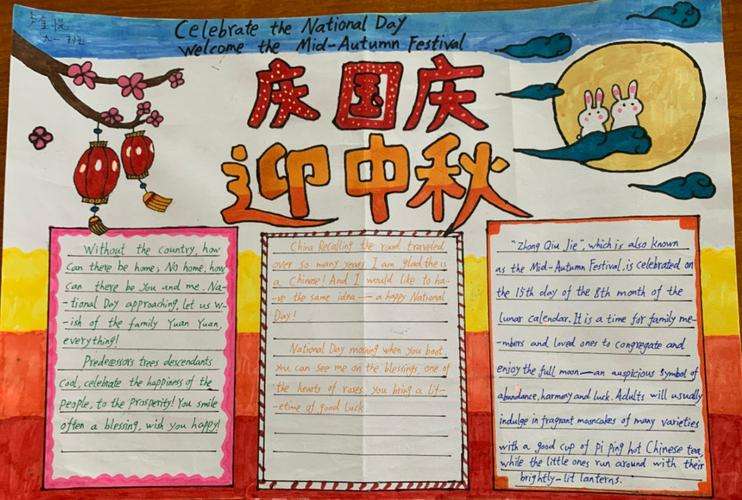 Celebrate the National Day
welcome the Mid-Autumn Festival
庆国庆
迎中秋
Without the country, how
can there be home, No home, how
can there be you and me. Na-
-tional Day approaching, let us w-
-ish of the family Yuan Yuan,
everything!
Predecessors trees descendants
Cool, celebrate the happiness of the
people, to the prosperity! You smile
often a blessing, wish you happy!
China Recalling the road traveled
over so many years I am glad the is
a Chinese! And I would like to ha-
-ve the same idea — a happy National
Day!
National Day morning when you boot
you can see me on the blessings one of
the hearts of roses you bring a lif-
-etime of good luck
"Zhong Qiu Jie", which is also known
as the Mid-Autumn Festival, is celebrated on
the 15th day of the 8th month of the
lunar calendar. It is a time for family me-
-mbers and loved ones to congregate and
enjoy the full moon — an auspicious symbol of
abundance, harmony and luck. Adults will usually
indulge in fragrant mooncakes of many varieties
with a good cup of pi ping hot Chinese tea,
while the little ones run around with their
brightly-lit lanterns.